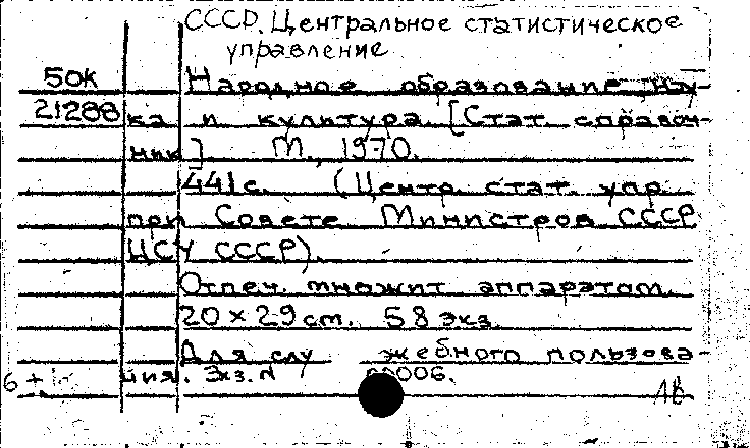 СССР. Центральное статистическое
управление
50К Народное образование, нау-
21288 ка и культура. [Стат. справоч-
ник]. М., 1970.
441 с. (Центр. стат. упр.
при Совете Министров СССР
ЦСУ СССР).
Отпеч. множит. аппаратом.
20 × 29 cm. 58 экз.
Для слу жебного пользова-
6 + ния. Экз. N 00006.